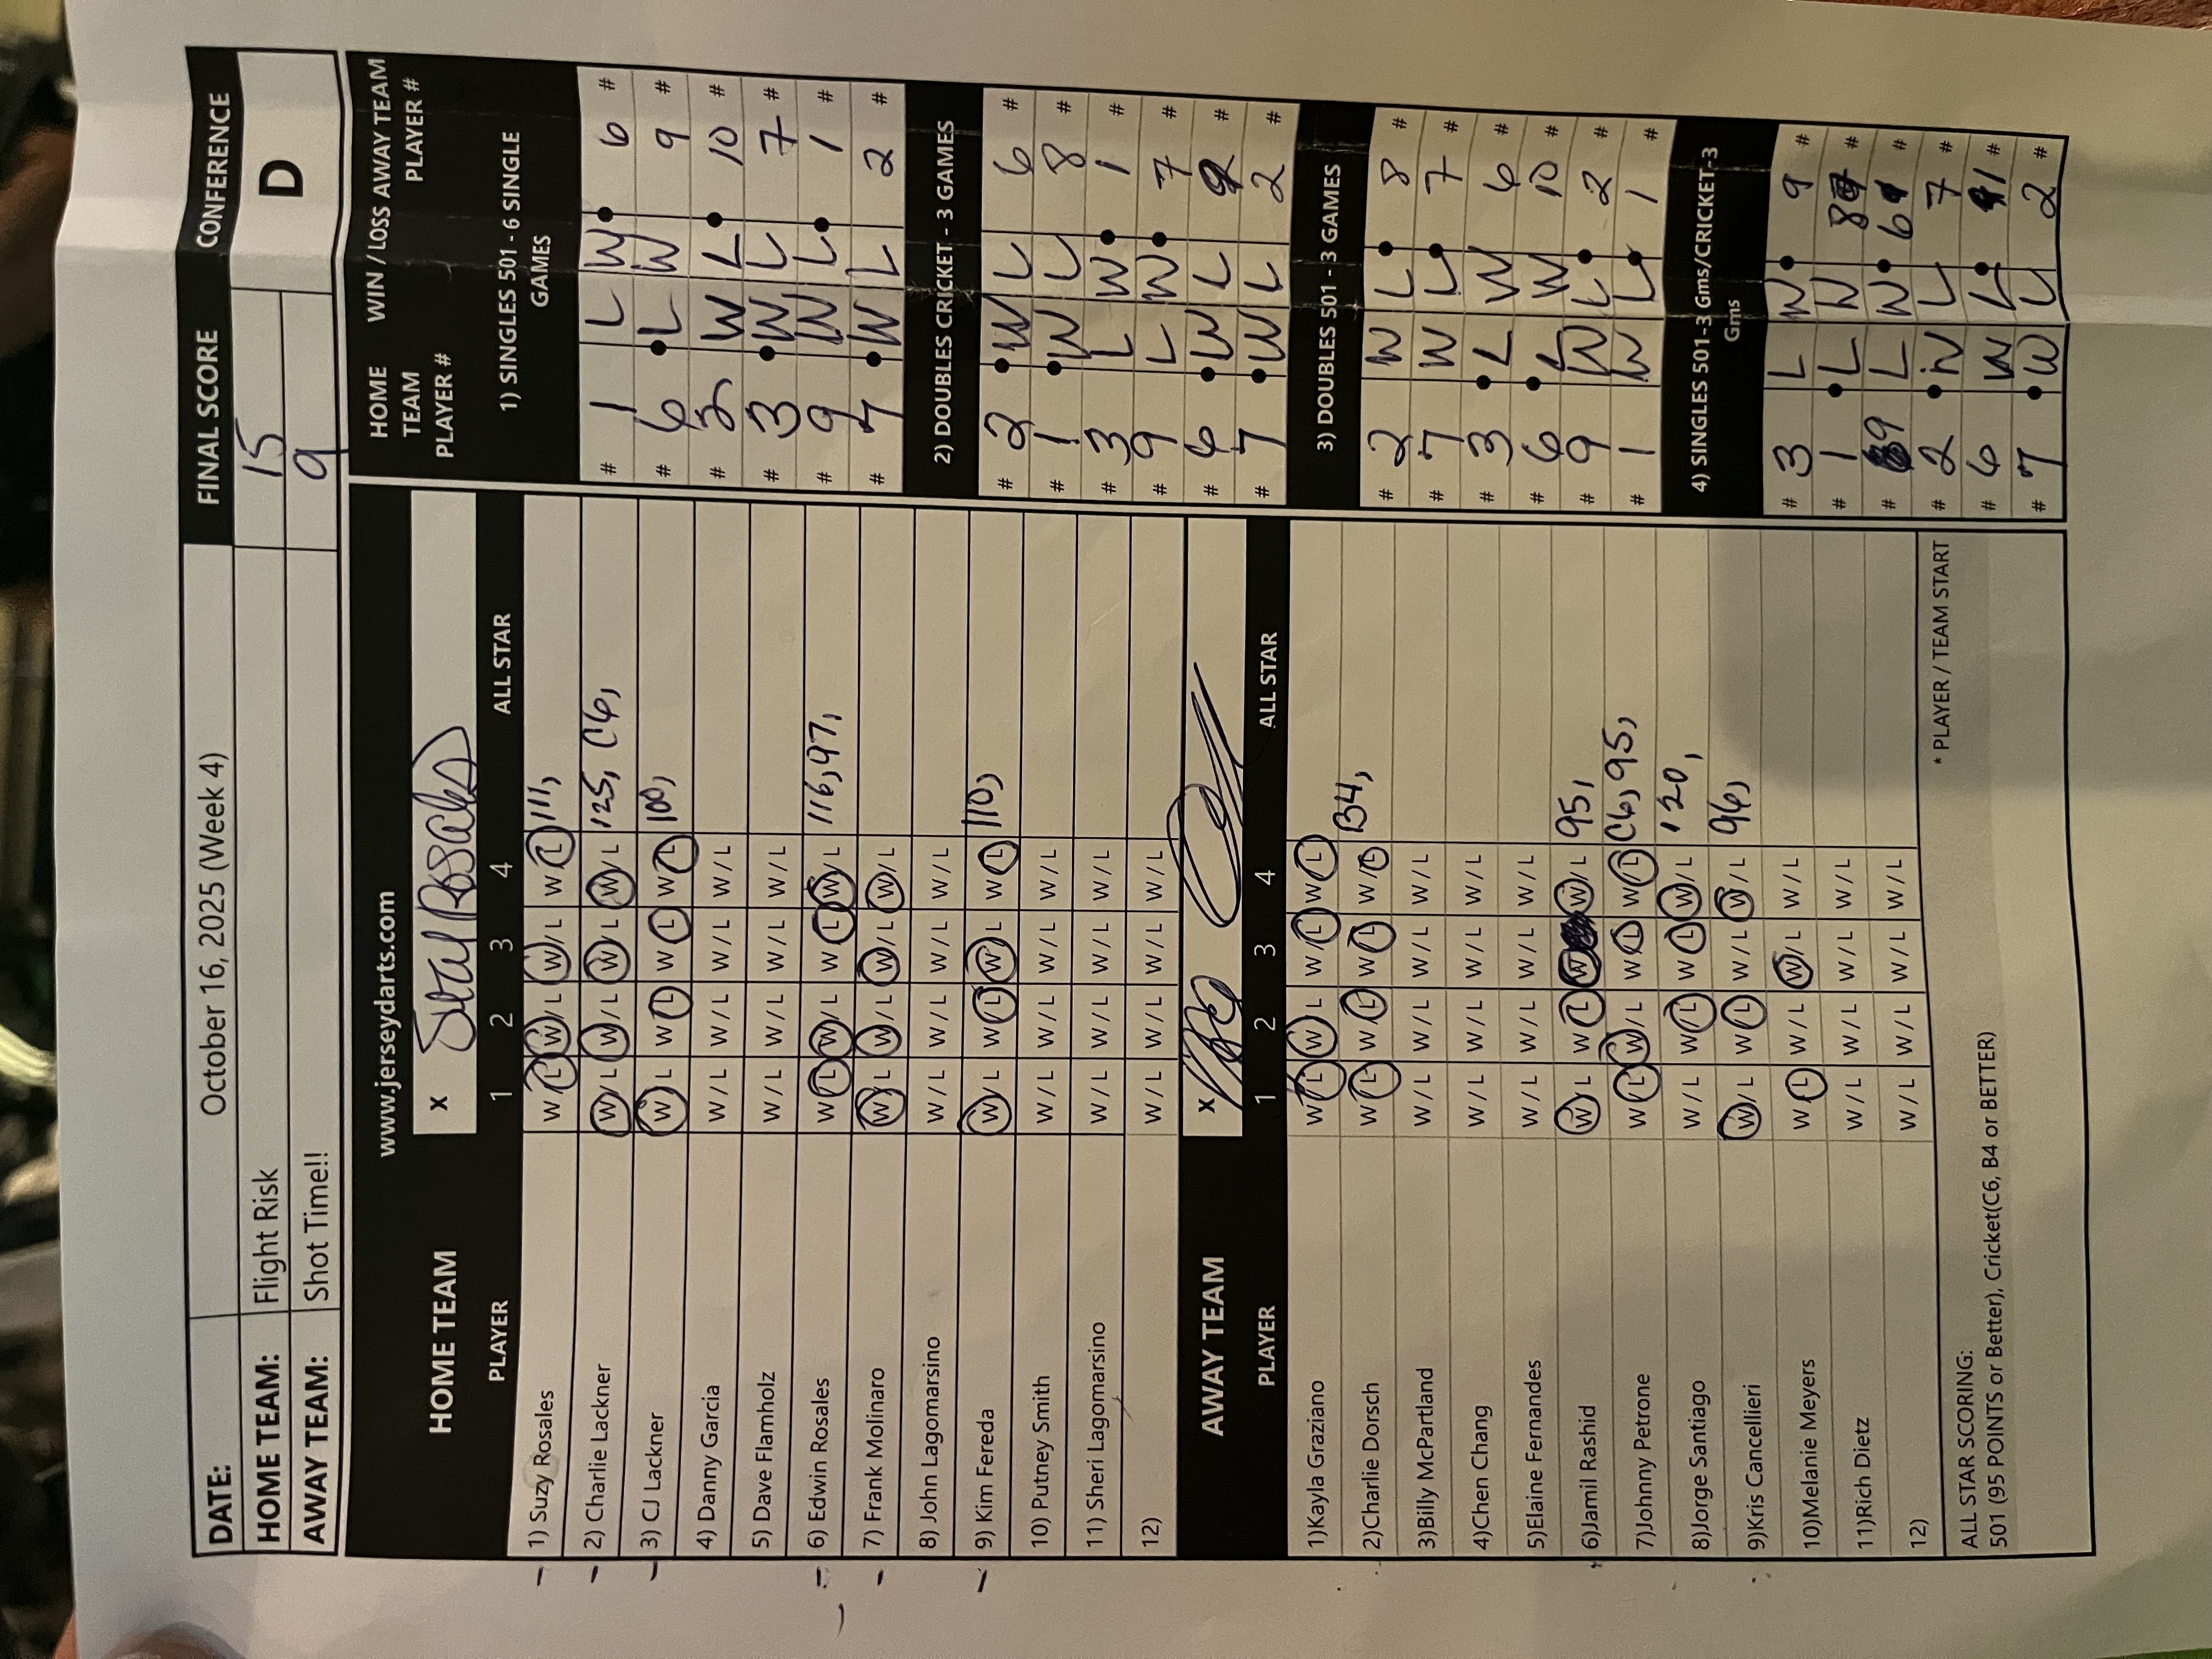 DATE: October 16, 2025 (Week 4) FINAL SCORE CONFERENCE
HOME TEAM: Flight Risk 15 D
AWAY TEAM: Shot Time!! 9
www.jerseydarts.com
HOME TEAM x
PLAYER 1 2 3 4 ALL STAR
1) Suzy Rosales W / L W / L W / L W / L 111,
2) Charlie Lackner W / L W / L W / L W / L 125, C6,
3) CJ Lackner W / L W / L W / L W / L 100,
4) Danny Garcia W / L W / L W / L W / L
5) Dave Flamholz W / L W / L W / L W / L
6) Edwin Rosales W / L W / L W / L W / L 116, 97,
7) Frank Molinaro W / L W / L W / L W / L
8) John Lagomarsino W / L W / L W / L W / L
9) Kim Fereda W / L W / L W / L W / L 110,
10) Putney Smith W / L W / L W / L W / L
11) Sheri Lagomarsino W / L W / L W / L W / L
12) W / L W / L W / L W / L
AWAY TEAM x
PLAYER 1 2 3 4 ALL STAR
1)Kayla Graziano W / L W / L W / L W / L
2)Charlie Dorsch W / L W / L W / L W / L B4,
3)Billy McPartland W / L W / L W / L W / L
4)Chen Chang W / L W / L W / L W / L
5)Elaine Fernandes W / L W / L W / L W / L
6)Jamil Rashid W / L W / L W W / L 95,
7)Johnny Petrone W / L W / L W / L W / L C6, 95,
8)Jorge Santiago W / L W / L W / L W / L 120,
9)Kris Cancellieri W / L W / L W / L W / L 96,
10)Melanie Meyers W / L W / L W / L W / L
11)Rich Dietz W / L W / L W / L W / L
12) W / L W / L W / L W / L
* PLAYER / TEAM START
ALL STAR SCORING:
501 (95 POINTS or Better), Cricket(C6, B4 or BETTER)
HOME WIN / LOSS AWAY TEAM
TEAM PLAYER #
PLAYER #
1) SINGLES 501 - 6 SINGLE
GAMES
# 1 L W 6 #
# 6 L W 9 #
# 2 W L 10 #
# 3 W L 7 #
# 9 W L 1 #
# 7 W L 2 #
2) DOUBLES CRICKET - 3 GAMES
# 2 W L 6 #
# 1 W L 8 #
# 3 L W 1 #
# 9 L W 7 #
# 6 W L #
# 7 W L 2 #
3) DOUBLES 501 - 3 GAMES
# 2 W L 8 #
# 7 W L 7 #
# 3 L W 6 #
# 6 L W 10 #
# 9 W L 2 #
# 1 W L 1 #
4) SINGLES 501-3 Gms/CRICKET-3
Gms
# 3 L W 9 #
# 1 L W 8 #
# 9 L W 6 #
# 2 W L 7 #
# 6 W L 1 #
# 7 W L 2 #